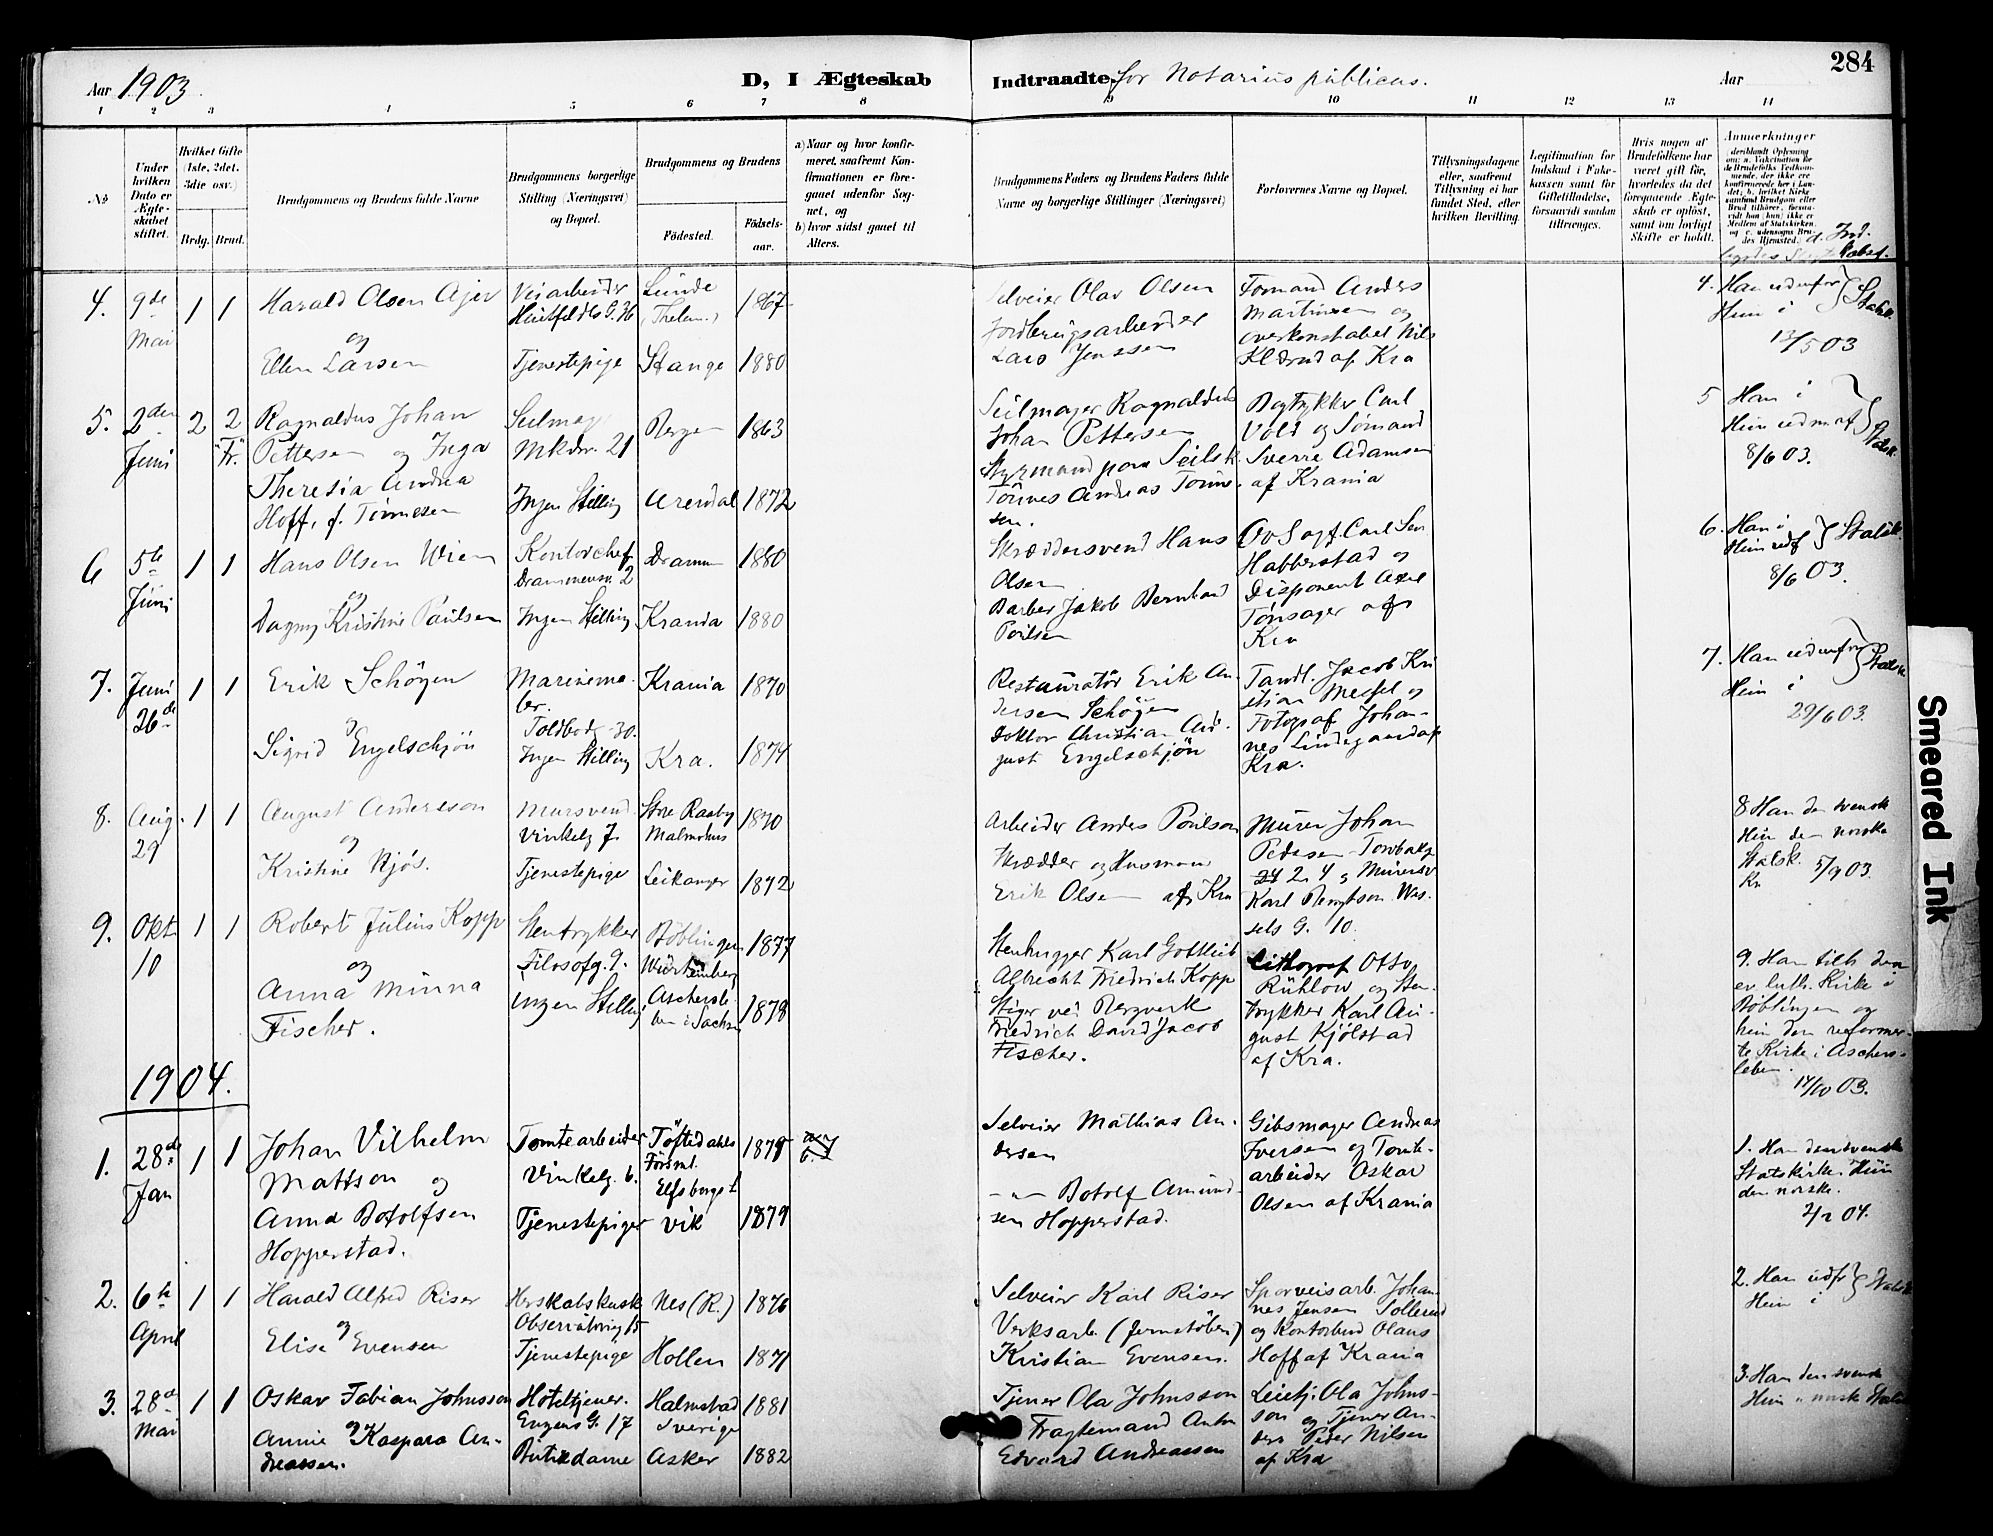 284
Aar 1903.
D, I Ægteskab Indtraadte for Notarius publicus.
Aar
1 2 3 4 5 6 7 8 9 10 11 12 13 14
No
Under hvilken Dato er Ægteskabet stiftet.
Hvilket Gifte (1ste, 2det, 3die osv.)
Brdg. Brud.
Brudgommens og Brudens fulde Navne
Brudgommens borgerlige Stilling (Næringsvei) og Bopæl.
Brudgommens og Brudens
Födested.
Födselsaar.
a) Naar og hvor konfirmeret, saafremt Konfirmationen er foregaaet udenfor Sognet, og
b) hvor sidst gaaet til Alters.
Brudgommens Faders og Brudens Faders fulde Navne og borgerlige Stillinger (Næringsvei)
Forlovernes Navne og Bopæl.
Tillysningsdagene eller, saafremt Tillysning ei har fundet Sted, efter hvilken Bevilling.
Legitimation for Indskud i Enkekassen samt for Giftetilladelse, forsaavidt saadan tiltrænges.
Hvis nogen af Brudefolkene har været gift før, hvorledes da det foregaaende Ægteskab er opløst, samt om lovligt Skifte er holdt.
Anmerkninger
4. 9de Mai 1 1
Harald Olsen Ajer
og
Ellen Larsen
Veiarbeider
Huitfeldts G. 36
Tjenestepige
Lunde
(Thelem.)
Stange
1867
1880
Selveier Olav Olsen
Jordbrugsarbeider
Lars Jenssen
Formand Anders
Martinsen og
overkonstabel Nils
Kldrud af Kra
4. Han udenfor
Hun i } Statsk.
12/5 03
5. 2den Juni 2 2
Fr.
Ragnaldus Johan
Pettersen og Inga
Theresia Andrea
Hoff, f. Tønnesen
Seilmag
Mkdsv. 21
Ingen Stilling
Bergen
Arendal
1863
1872
Seilmager Ragnaldus
Johan Pettersen
Styrmand paa Seilsk.
Tønnes Andreas Tønne-
sen.
Bogtykker Carl
Vold og Sømand
Sverre Adamsen
af Krania
5 Han i
Hun udenf } Statsk.
8/6 03.
6 5te Juni 1 1
Hans Olsen Wien
og
Dagny Kristine Paulsen
Kontorchef
Drammensv. 2
Ingen Stilling
Dramm
Krania
1880
1880
Skræddersvend Hans
Olsen
Barber Jakob Bernhard
Poulsen
OvSagf. Carl Sen
Habberstad og
Disponent Axel
Tønsager af
Kra
6. Han i
Hun udf } Statsk.
8/6 03.
7. Juni 26de 1 1
Erik Schøyen
og
Sigrid Engelschjøn
Marinema-
ler.
Toldbodg. 30.
Ingen Stilling
Krania
Kra.
1870
1874
Restauratør Erik An-
dersen Schøyen
Doktor Christian Au-
gust Engelschjøn
Tandl. Jacob Kri
stian Messel og
Fotograf Johan-
nes Lindegaard af
Kra.
7. Han udenfor
Hun i } Statsk.
29/6 03.
8. Aug. 29 1 1
August Anderson
og
Kristine Njøs.
Mursvend
Vinkelg 7.
Tjenestepige
Store Raaby
Malmøhus
Leikanger
1870
1872
Arbeider Andes Poulson
Skrædder og Husman
Erik Olsen af Kra
Murer Johan
Pedersen Tor
2 4 og Murersv
Karl Bengtson Wes-
sels G. 10.
8 Han den svensk
Hun den norska
Statsk.
Kra 5/9 03.
9. Okt. 10 1 1
Robert Julius Kopp
og
Anna Minna
Fischer.
Stentrykker
Filosofg. 9.
Ingen Stilling
Böblingen
Würtemberg
Aschersle-
ben i Sachsn
1877
1878
Stenhugger Karl Gottlieb
Albrecht Friedrich Kopp
Stiger ved Bergverk
Friedrich David Jacob
Fischer.
Litograf Otto
Rühlow og Sten-
trykker Karl Au-
gust Kjølstad
af Kra.
9. Han tilh den
ev luth. Kirke i
Böblingen og
hun den reformer-
te Kirke i Aschers-
leben.
14/10 03.
1904.
1. 28de Jan 1 1
Johan Vilhelm
Mattson og
Anna Botolfsen
Hopperstad.
Tomtearbeider
Vinkelg. 6.
Tjenestepiger
Töftedahls
Försml.
Elfsborgs l.
Vik
1879
1879
Selveier Mathias An-
dersen
-"- Botolf Amund-
sen Hopperstad.
Gibsmager Andreas
Iversen og Tomte-
arbeider Oskar
Olsen af Krania
1. Han den svenske
Statskirke Hun
den norske.
2/2 04.
2. 6te April 1 1
Harald Alfred Riser
og
Elise Evensen
Herskabskusk
Observatorieg 15
Tjenestepige
Nes (R.)
Hollen
1876
1871
Selveier Karl Riser
Verksarb. (Jernstøberi)
Kristian Evensen.
Sporveisarb. Johan-
nes Jensen Sollerud
og Kontorbud Olaus
Hoff af Krania
2. Han udfr
Hun i } Statsk
3. 28de Mai 1 1
Oskar Fabian Johnsson
og
Annie Kaspara An-
dreassen.
Hoteltjener.
Engens G. 17
Butikdame
Halmstad
Sverige
Asker
1881
1882
Tjener Ola Johnsson
Fragtemand Anton
Edvard Andreassen
Leietj. Ola Johns-
son og Tjener An-
ders Peder Nilsen
af Kra
3. Han den svensk
Hun " norsk Statsk
Smeared Ink